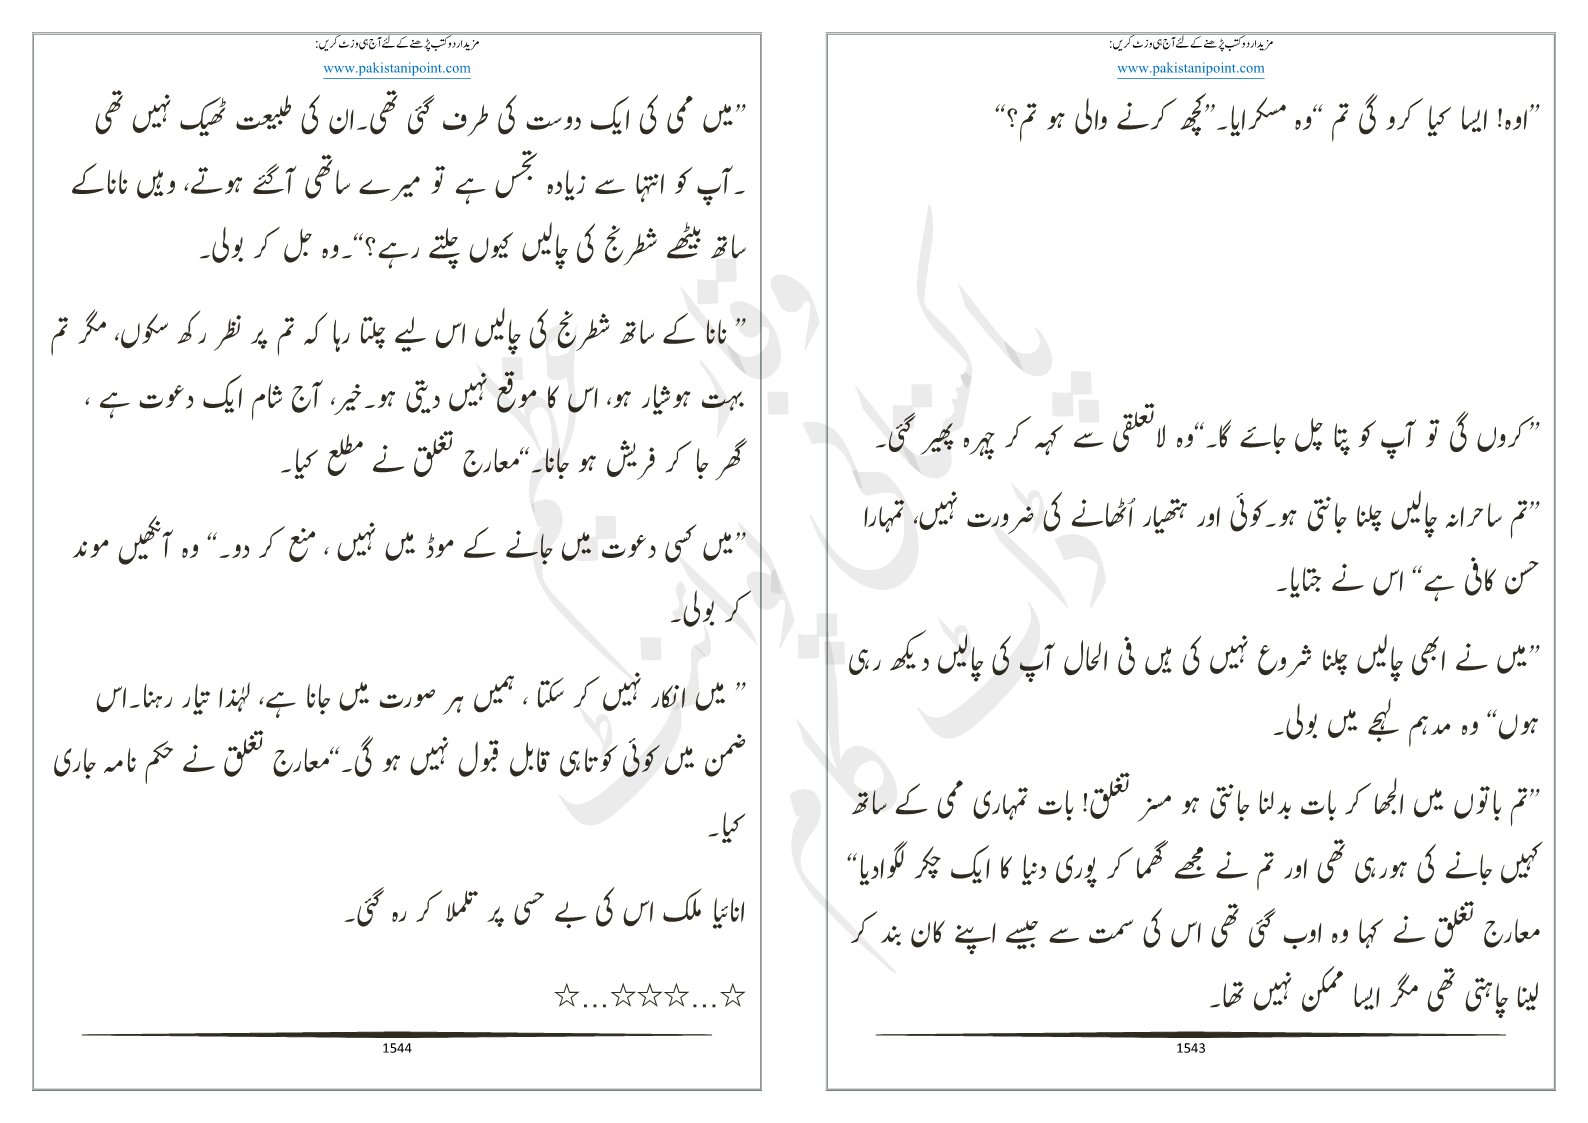 مزید اردو کتب پڑھنے کے لئے آج ہی وزٹ کریں:
www.pakistanipoint.com
”اوہ! ایسا کیا کرو گی تم “وہ مسکرایا۔”کچھ کرنے والی ہو تم؟“
”کروں گی تو آپ کو پتا چل جائے گا۔“وہ لاتعلقی سے کہہ کر چہرہ پھیر گئی۔
”تم ساحرانہ چالیں چلنا جانتی ہو۔کوئی اور ہتھیار اُٹھانے کی ضرورت نہیں، تمہارا
حسن کافی ہے“ اس نے جتایا۔
”میں نے ابھی چالیں چلنا شروع نہیں کی ہیں فی الحال آپ کی چالیں دیکھ رہی
ہوں“ وہ مدہم لہجے میں بولی۔
”تم باتوں میں الجھا کر بات بدلنا جانتی ہو مسز تغلق! بات تمہاری ممی کے ساتھ
کہیں جانے کی ہورہی تھی اور تم نے مجھے گھما کر پوری دنیا کا ایک چکر لگوادیا“
معارج تغلق نے کہا وہ اوب گئی تھی اس کی سمت سے جیسے اپنے کان بند کر
لینا چاہتی تھی مگر ایسا ممکن نہیں تھا۔
1543
مزید اردو کتب پڑھنے کے لئے آج ہی وزٹ کریں:
www.pakistanipoint.com
”میں ممی کی ایک دوست کی طرف گئی تھی۔ان کی طبیعت ٹھیک نہیں تھی
۔آپ کو انتہا سے زیادہ تجسس ہے تو میرے ساتھی آگئے ہوتے، وہیں ناناکے
ساتھ بیٹھے شطرنج کی چالیں کیوں چلتے رہے؟“۔وہ جل کر بولی۔
” نانا کے ساتھ شطرنج کی چالیں اس لیے چلتا رہا کہ تم پر نظر رکھ سکوں، مگر تم
بہت ہوشیار ہو، اس کا موقع نہیں دیتی ہو۔خیر، آج شام ایک دعوت ہے ،
گھر جا کر فریش ہو جانا۔“معارج تغلق نے مطلع کیا۔
”میں کسی دعوت میں جانے کے موڈ میں نہیں ، منع کر دو۔“ وہ آنکھیں موند
کر بولی۔
” میں انکار نہیں کر سکتا ، ہمیں ہر صورت میں جانا ہے، لہٰذا تیار رہنا۔اس
ضمن میں کوئی کوتاہی قابل قبول نہیں ہو گی۔“معارج تغلق نے حکم نامہ جاری
کیا۔
انائیا ملک اس کی بے حسی پر تلملا کر رہ گئی۔
☆…☆☆☆…☆
1544
پاکستانی پوائنٹ ڈاٹ کام